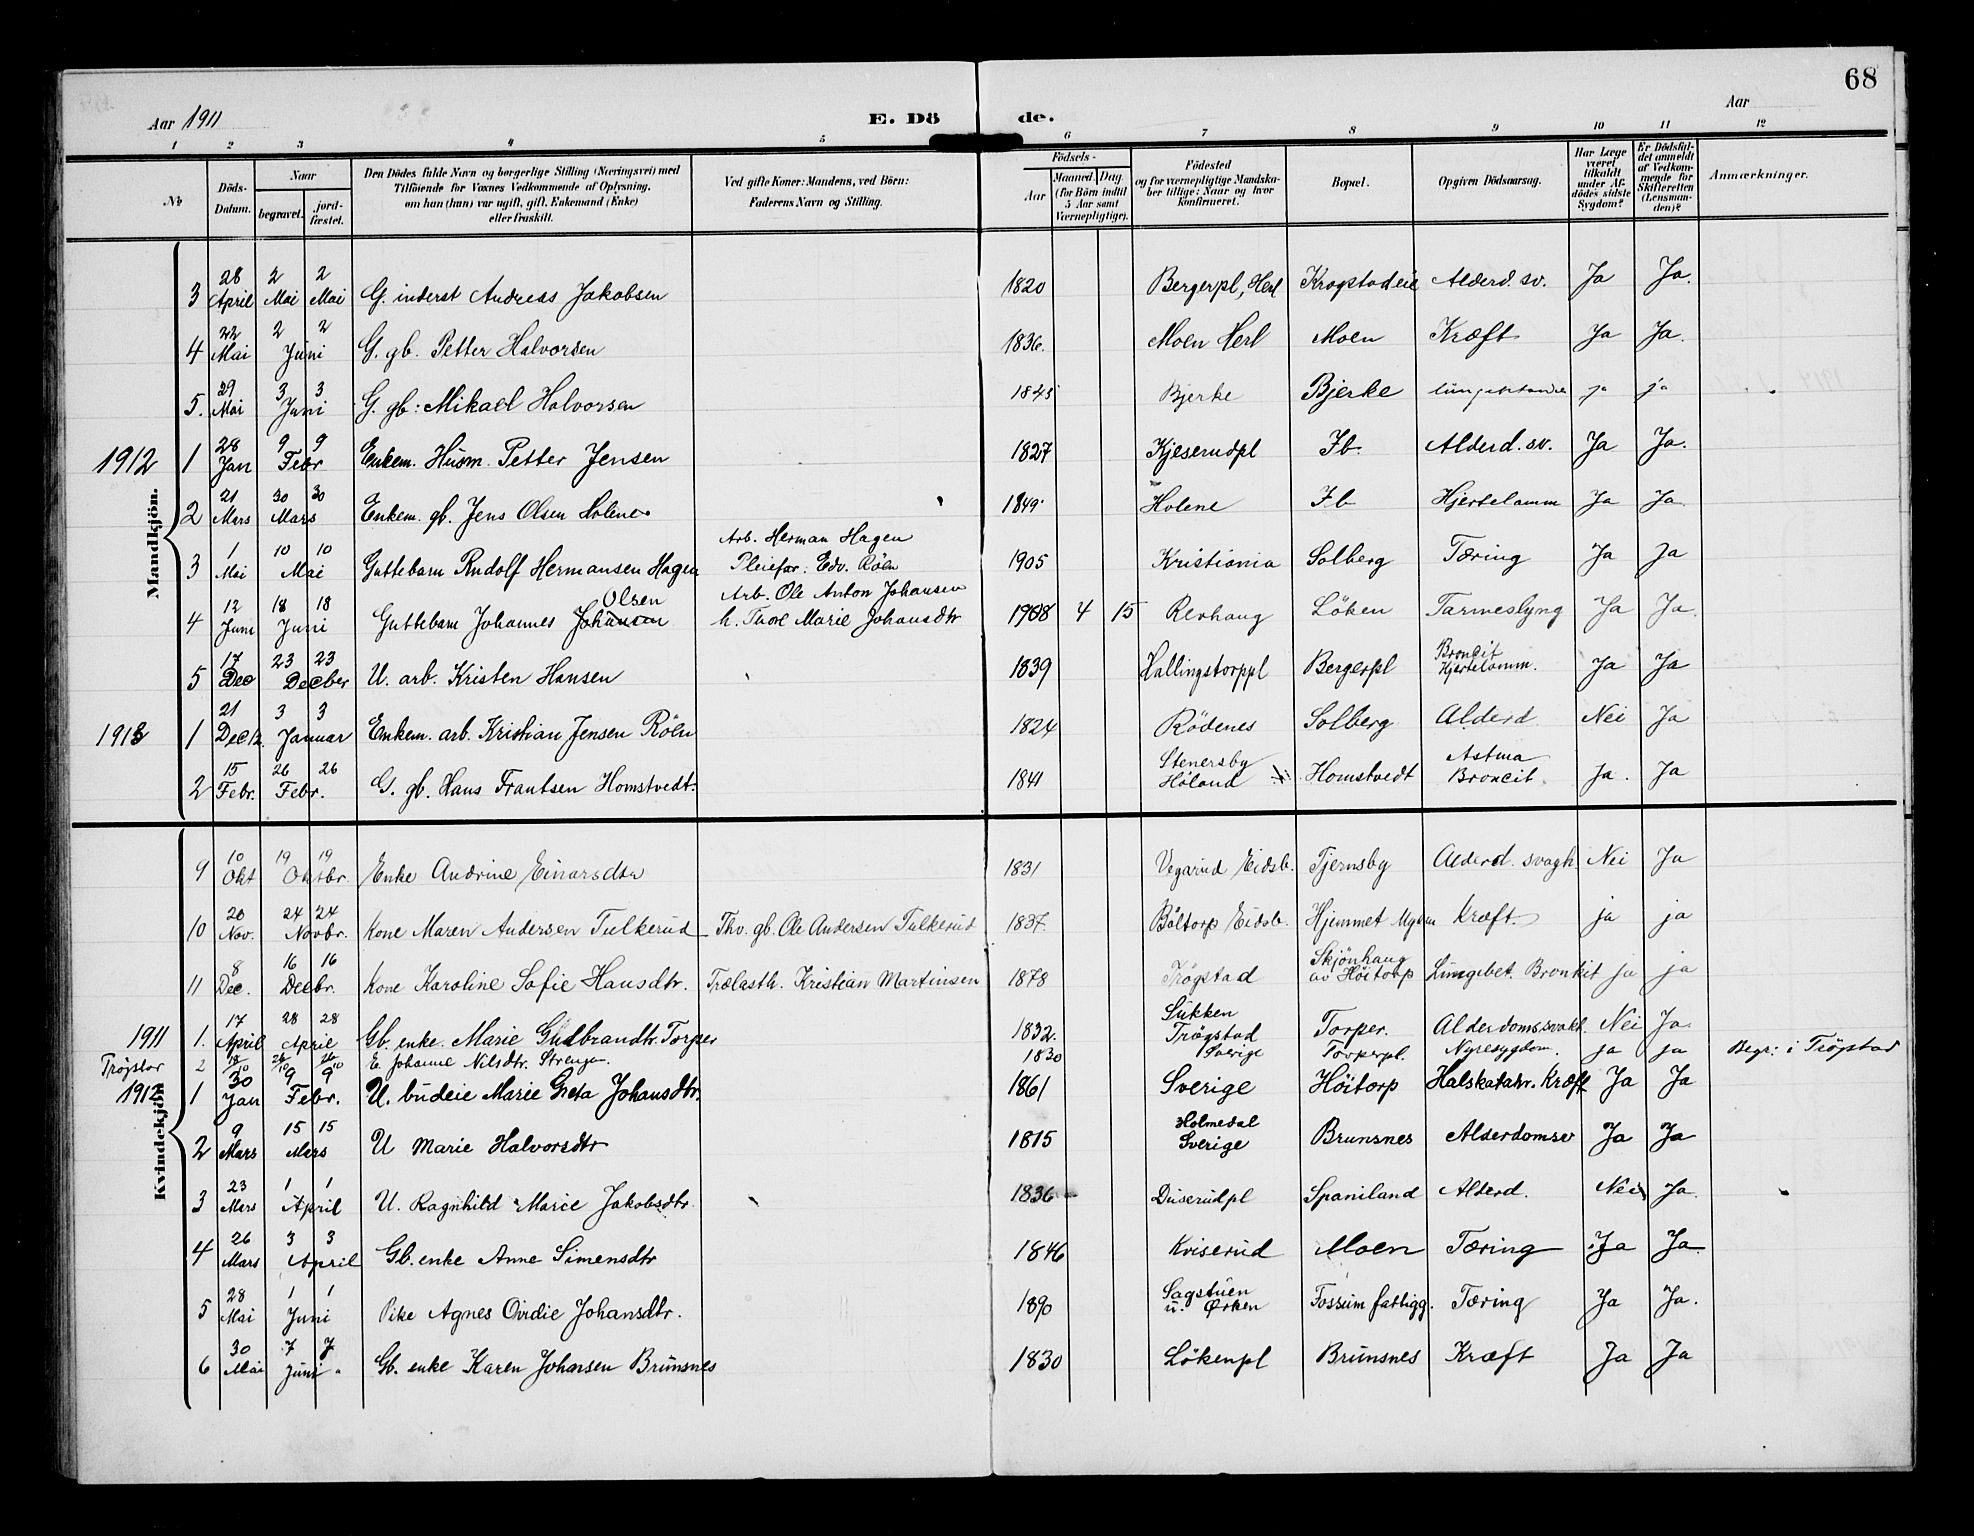 68
Aar 1911 E. Dö de. Aar
1 2 3 4 5 6 7 8 9 10 11 12
No Döds-Datum. Naar begravet. jord-fæstet. Den Dödes fulde Navn og borgerlige Stilling (Næringsvei) med Tilföiende for Voxnes Vedkommende af Oplysning. om han (hun) var ugift, gift, Enkemand (Enke) eller fraskilt. Ved gifte Koner: Mandens, ved Börn: Faderens Navn og Stilling. Födsels- Aar Maaned. Dag. (for Börn indtil 5 Aar samt Værnepligtige). Födested og for værnepligtige Mandskaber tillige: Naar og hvor Konfirmeret. Bopæl. Opgiven Dödsaarsag. Har Læge været tilkaldt under Afdödes sidste Sygdom? Er Dödsfaldet anmeldt af Vedkommende for Skifteretten (Lensmanden)? Anmærkninger.
Mandkjön.
3 28 April 2 Mai 2 Mai G. inderst Andreas Jakobsen 1820 Bergerpl, Herl Krogstadeie Alderd. sv. Ja Ja.
4 22 Mai 2 2 Juni G. gb. Petter Halvorsen 1836. Moen Herl Moen Kræft Ja Ja.
5. 29 Mai 3 3 Juni G. gb: Mikael Halvorsen 1845 Bjerke Bjerke ja ja
1912 1 28 Jan 9 9 Febr Enkem. Husm. Petter Jensen 1827 Kjeserudpl Ib. Alderd. sv. Ja Ja.
2 21 Mars 30 30 Mars Enkem. gb. Jens Olsen Holene 1849 Holene Ib Hjertelamm Ja Ja
3 1 Mai 10 10 Mai Guttebarn Rudolf Hermansen Hagen Arb. Herman Hagen Pleiefar: Edv. Röln 1905 Kristiania Solberg Tæring Ja Ja
4 12 Juni 18 18 Juni Guttebarn Johannes Johansen Olsen Arb. Ole Anton Johansen h. Thore Marie Johansdtr 1908 4 15 Revhaug Löken Tarmeslyng Ja Ja.
5 17 Dec 23 23 Decber U. arb. Kristen Hansen 1839 Hallingstorppl Bergerpl Broncit Hjertelamm. Ja Ja
1913 1 21 Dec 12 3 3 Januar Enkem. arb. Kristian Jensen Röln 1824 Rödenes Solberg Alderd Nei Ja
2 15 Febr. 26 26 Febr. G. gb. Hans Frantsen Homstvedt. 1841 Stenersby Höland Homstvedt Astma Broncit. Ja. Ja
Kvindekjön
9 10 Okt 19 19 Oktbr. Enke Andrine Einarsdtr 1831 Vegarud Eidsb. Tjernsby Alderd. svagh. Nei Ja
10 20 Nov. 24 24 Novbr. Kone Maren Andersen Tulkerud Thv. gb. Ole Andersen Tulkerud 1837. Böltorp Eidsb. Hjemmet Mysen Kræft. ja ja
11 8 Dec. 16 16 Decbr. Kone Karoline Sofie Hansdtr. Trælasth. Kristian Martinsen 1878 Trögstad Skjönhaug av Höitorp Lungebet. Bronkit ja ja
1911 1. 17 April 28 28 April Gb. enke. Marie Gulbrandtr. Torper 1832. Sukken Trögstad Torper. Alderdomssvakh. Nei Ja.
Trögstad 2 18/10 26/10 26/10 E. Johanne Nilsdtr. Strengen 1830 Sverige Torperpl. Nyresygdom. ja ja Begr: i Trögstad
1912 1 30 Jan 9 9 Febr. U. budeie Marie Greta Johansdtr. 1861 Sverige Höitorp Halskatarr. Kræft Ja Ja
2 9 Mars 15 15 Mars U Marie Halvorsdtr 1815 Holmedal Sverige Brunsnes Alderdomsv Ja Ja
3 23 Mars 1 1 April U. Ragnhild Marie Jakobsdtr 1836 Duserudpl Spaniland Alderd. Nei Ja.
4 26 Mars 3 3 April Gb. enke Anne Simensdtr 1846 Kviserud Moen Tæring Ja Ja
5 28 Mai 1 1 Juni Pike Agnes Ovidie Johansdtr. 1890 Sagstuen u. Örken Fossum fattigg. Tæring Ja Ja.
6 30 Mai 7 7 Juni Gb. enke Karen Johansen Brunsnes 1830 Lökenpl Brunsnes Kræft Ja Ja